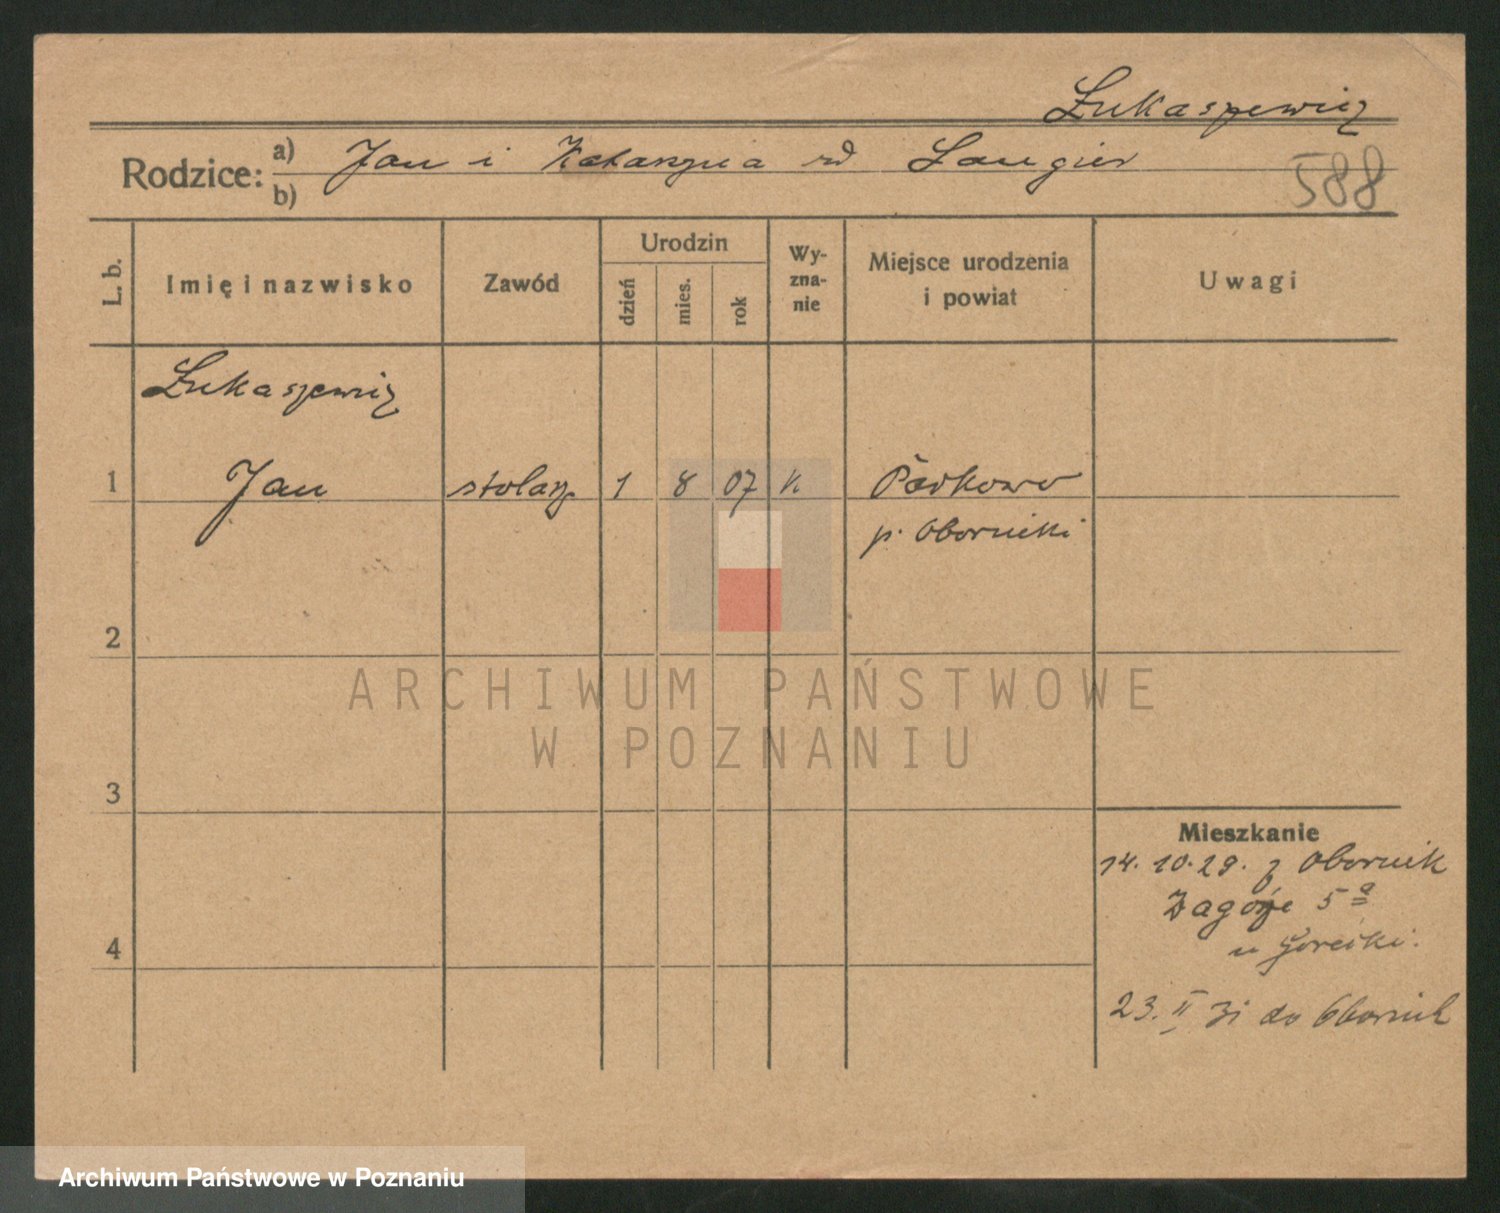 Łukaszewicz
Rodzice: a) Jan i Katarzyna rd Laugier
b)
588
L. b.
Imię i nazwisko
Zawód
Urodzin
dzień
mies.
rok
Wy-
zna-
nie
Miejsce urodzenia
i powiat
Uwagi
Łukaszewicz
1 Jan stolarz 1 8 07 K Parkowo
p. Obornicki
2
3
4
Mieszkanie
14. 10. 29. z Obornik
Zagórze 5a
u Górecki.
23. II 31 do Obornik
ARCHIWUM PAŃSTWOWE
W POZNANIU
Archiwum Państwowe w Poznaniu